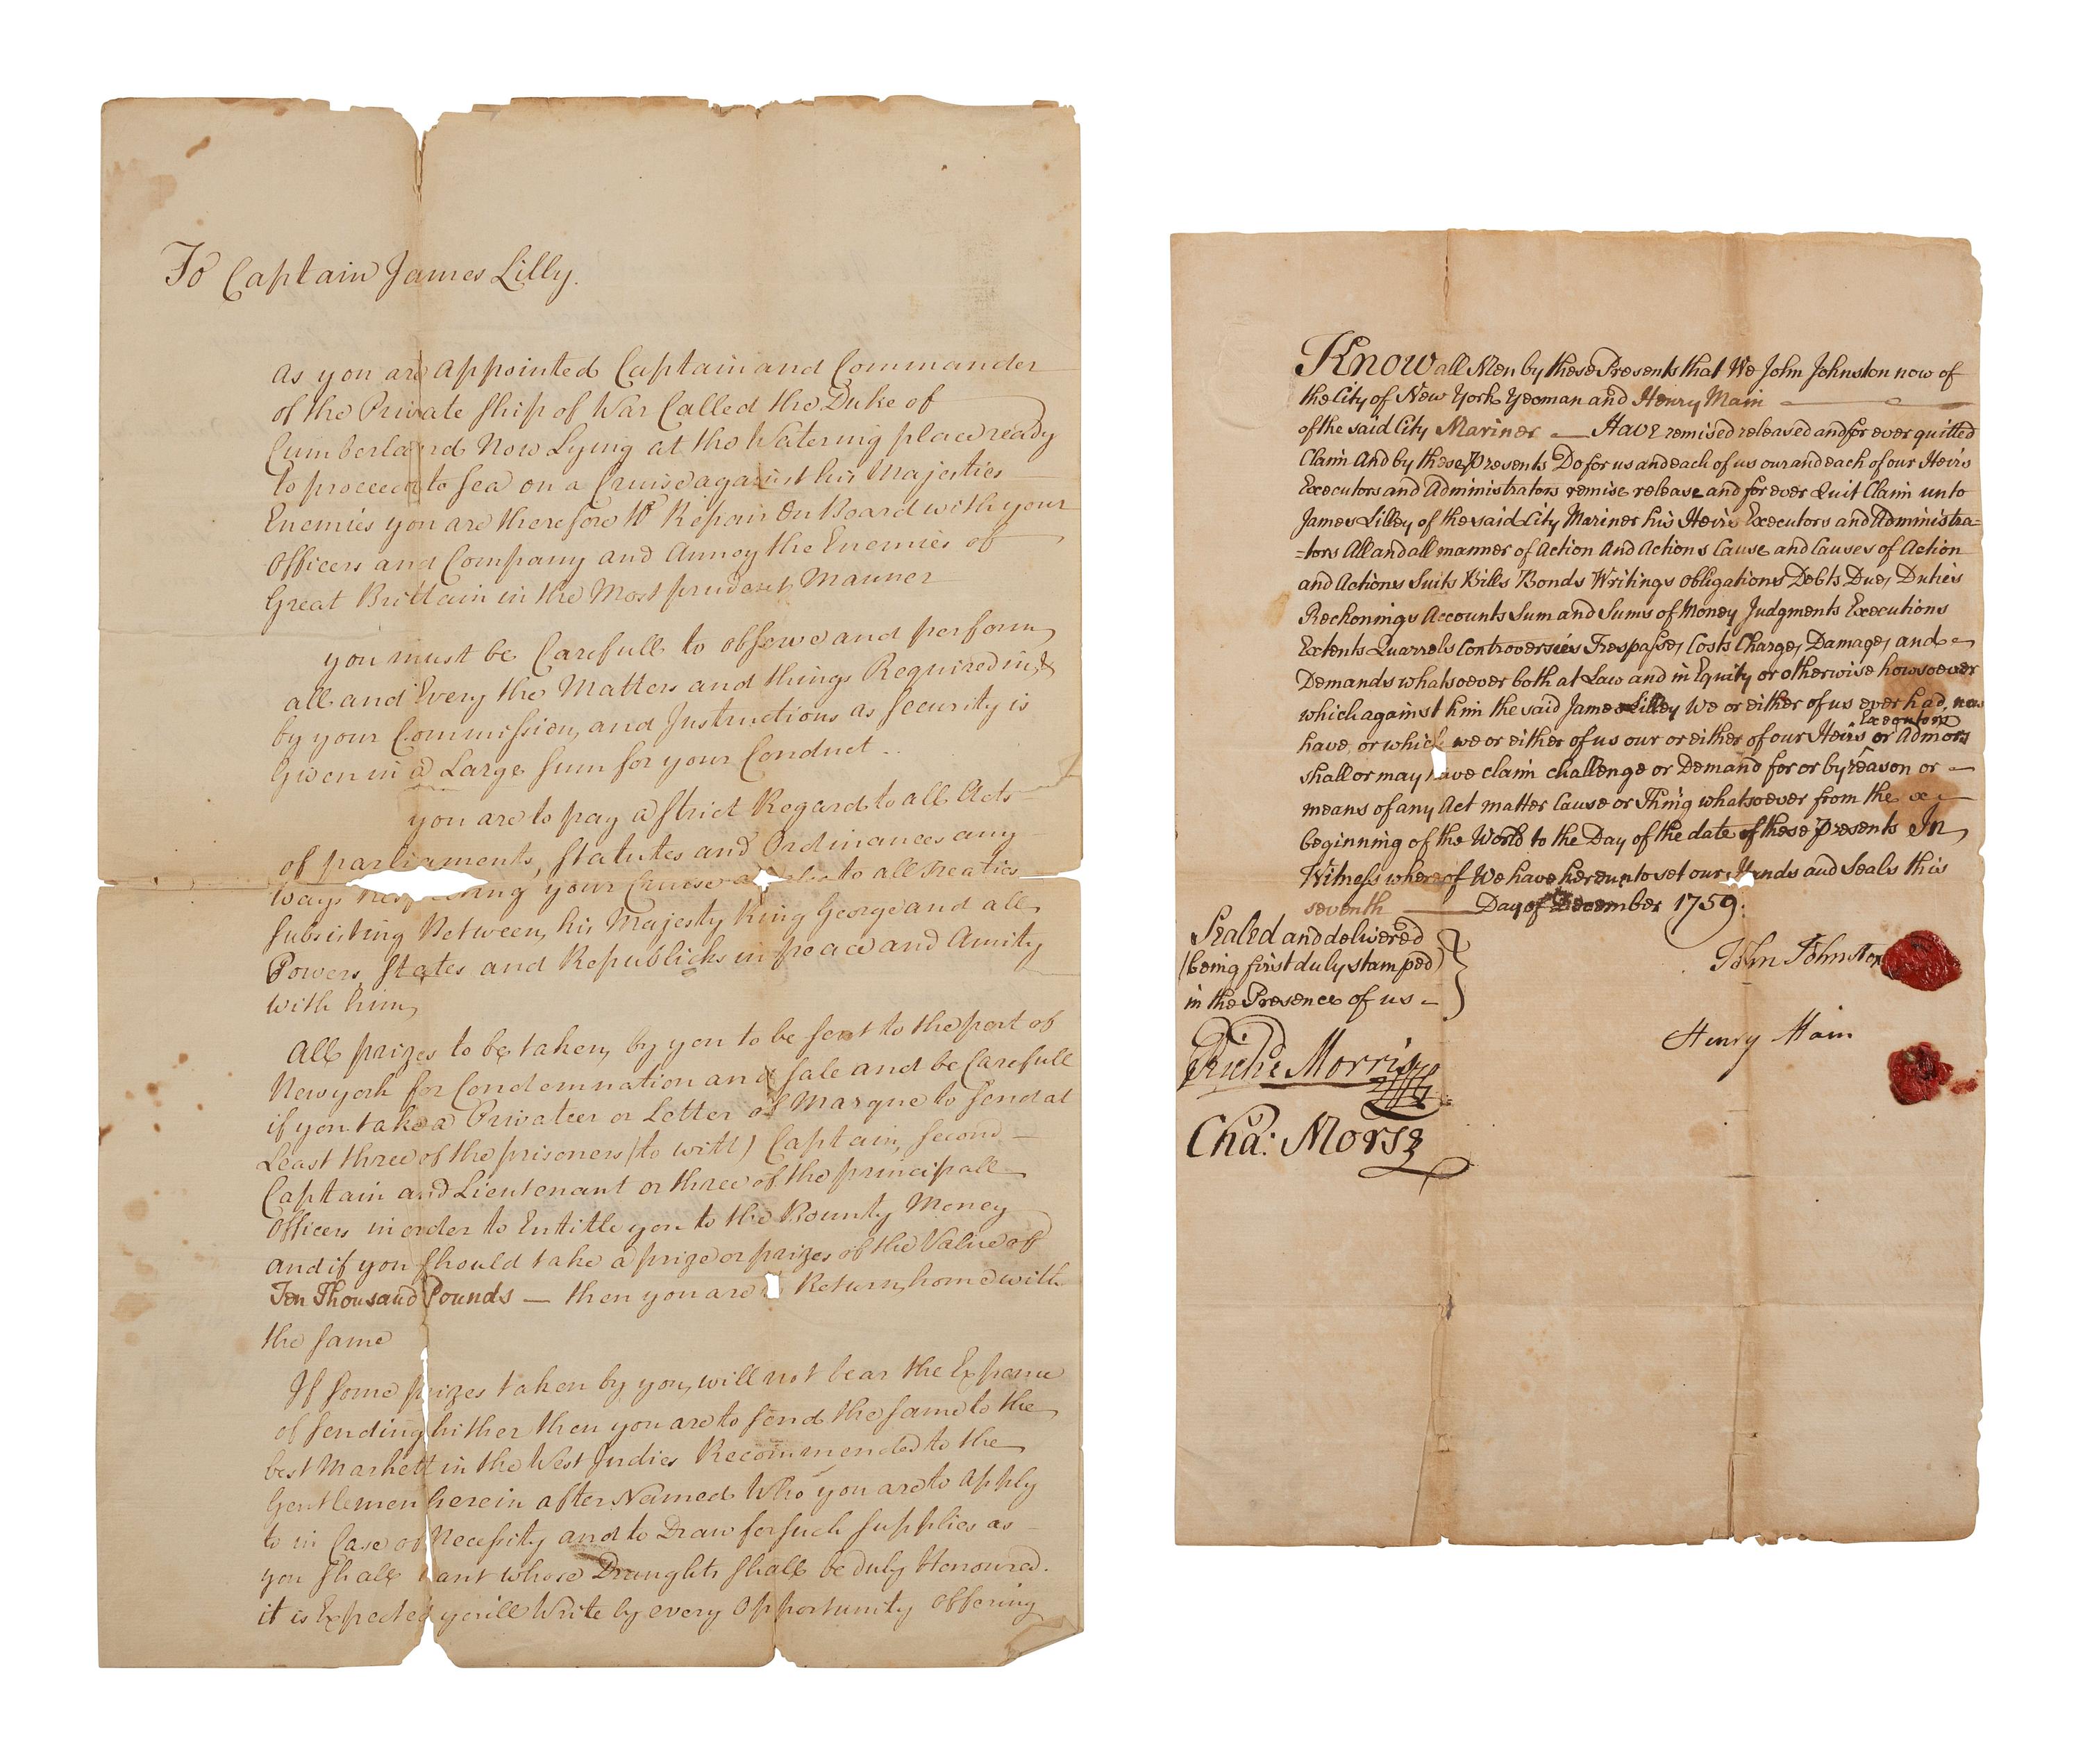 To Captain James Lilly.
As you are appointed Captain and Commander
of the Private Ship of War Called the Duke of
Cumberland Now Lying at the Watering place ready
to proceed to Sea on a Cruise against his Majesties
Enemies you are therefore to Repair On board with your
Officers and Company and Annoy the Enemies of
Great Brittain in the Most prudent Manner
you must be Carefull to observe and perform
all and Every the Matters and things Required in &
by your Commission, and Instructions as Security is
Given in a Large Sum for your Conduct..
you are to pay a Strict Regard to all Acts
of parliaments, Statutes and Ordinances any
ways respecting your Cruise to all Treaties
Subsisting Between, his Majesty King George and all
Powers, States and Republicks in peace and Amity
with him,
All prizes to be taken, by you to be sent to the port of
New york for Condemnation and Sale and be Carefull
if you take a Privateer or Letter of Marque to Send at
Least three of the prisoners (to witt) Captain, Second
Captain and Lieutenant or three of the principall
Officers in order to Entitle you to the Bounty Money
and if you Should take a prize or prizes of the Value of
Ten Thousand Pounds — then you are Return home with
the Same
If Some prizes taken by you, will not bear the Expence
of Sending hither then you are to Send the Same to the
best Markett in the West Indies Recommended to the
Gentlemen herein after Named Who you are to apply
to in Case of Necessity and to Draw for such Supplies as
you Shall want whose Draughts Shall be duly Honoured.
it is Expected you'll Write by every Opportunity offering
Know all Men by these Presents that We John Johnston now of
the City of New York Yeoman and Henry Main
of the said City Mariner — Have remised released and for ever quitted
Claim And by these Presents Do for us and each of us our and each of our Heirs
Executors and Administrators remise release and for ever Quit Claim unto
James Lilley of the said City Mariner his Heirs Executors and Administra=
=tors All and all manner of Action And Actions Cause and Causes of Action
and Actions Suits Bills Bonds Writings Obligations Debts Dues Duties
Reckonings Accounts Sum and Sums of Money Judgments Executions
Extents Quarrels Controversies Trespasses Costs Charges Damages and
Demands whatsoever both at Law and in Equity or otherwise howsoever
which against him the said James Lilley We or either of us ever had, now
have, or which we or either of us our or either of our Heirs Executors or Admors
shall or may have claim challenge or Demand for or by reason or
means of any Act matter Cause or Thing whatsoever from the
beginning of the World to the Day of the date of these presents In
Witness whereof We have hereunto set our Hands and Seals this
seventh Day of December 1759.
Sealed and delivered
(being first duly stamped)
in the Presence of us
John Johnston
Henry Main
Richd Morris
Cha: Morse